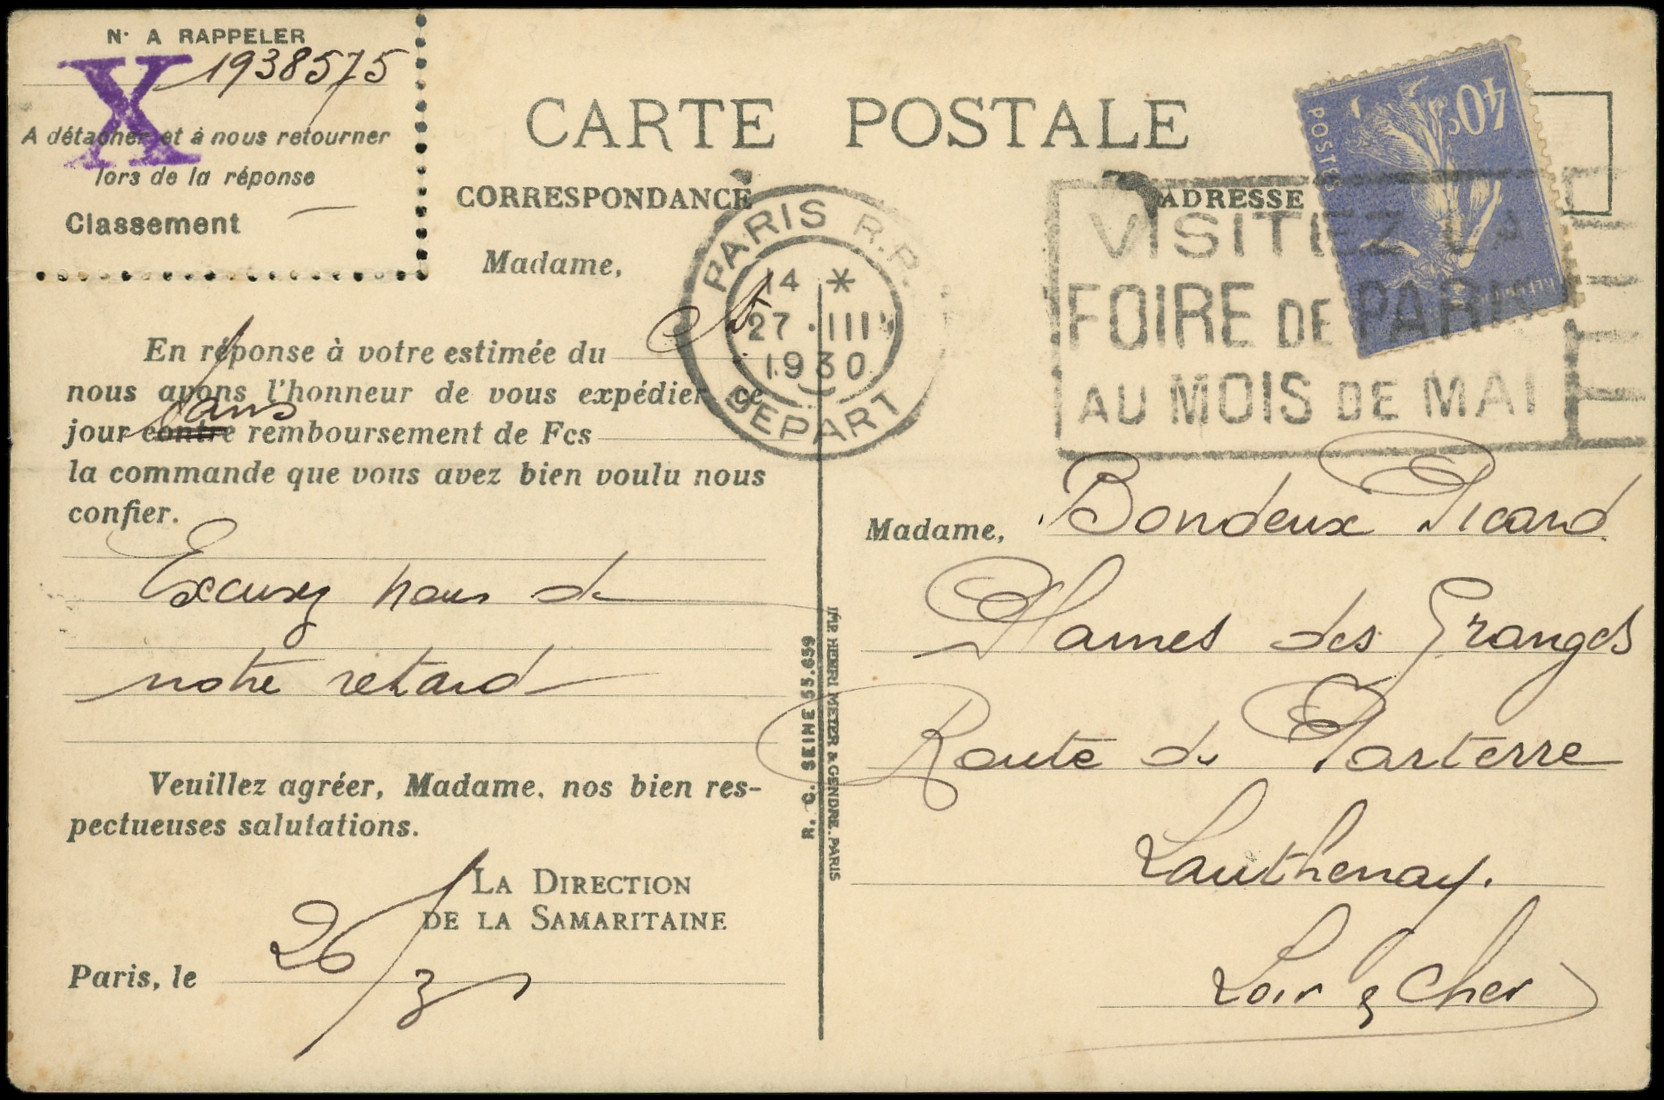 N° A RAPPELER
1938575
X
A détacher et à nous retourner
lors de la réponse
Classement
CARTE POSTALE
CORRESPONDANCE
ADRESSE
40c
POSTES
PARIS R.P.
14 *
27 · III
1930
DEPART
VISITEZ LA
FOIRE DE PARIS
AU MOIS DE MAI
Madame,
En réponse à votre estimée du
nous avons l'honneur de vous expédier ce
sans
jour contre remboursement de Fcs
la commande que vous avez bien voulu nous
confier.
Excusez nous de
notre retard
Veuillez agréer, Madame, nos bien res-
pectueuses salutations.
LA DIRECTION
DE LA SAMARITAINE
Paris, le 26/3
R. C. SEINE 55.659
IMP. HENRI METER & GENDRE. PARIS
Madame, Bondeux Picard
Hames des Granges
Route de Parterre
Lauthenay.
Loir & Cher